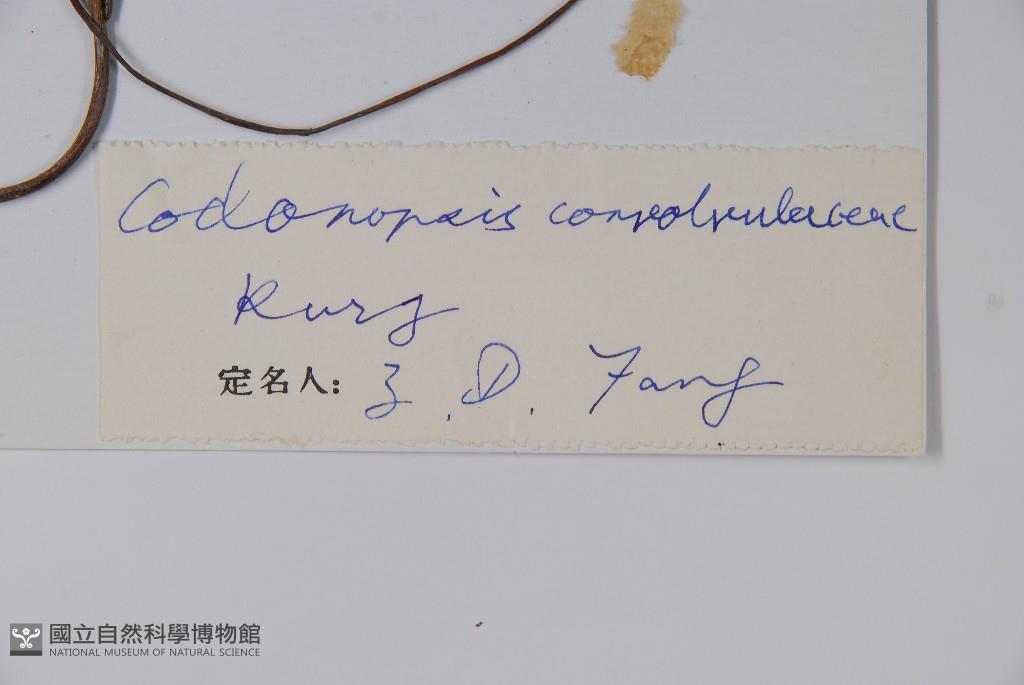 Codonopsis convolvulaceae
Kurz
定名人: Z. D. Fang
國立自然科學博物館
NATIONAL MUSEUM OF NATURAL SCIENCE